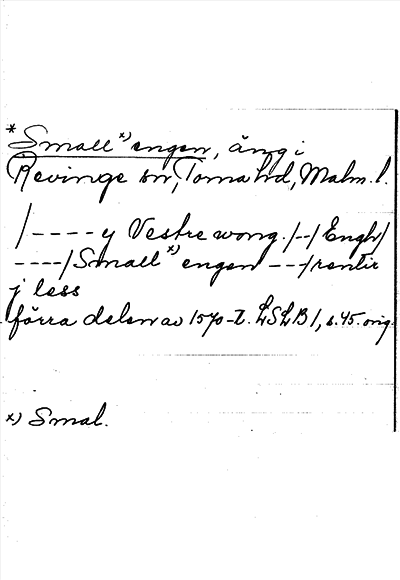 * Smallˣ⁾engen, äng i
Revinge sn, Torna hd, Malm. l.
/---- y Vestre wong. /--/ Engh/
----/ Smallˣ⁾engen ---/rentir
j less
förra delen av 1570-t. LSLB1, s. 45. orig.
x) Smal.